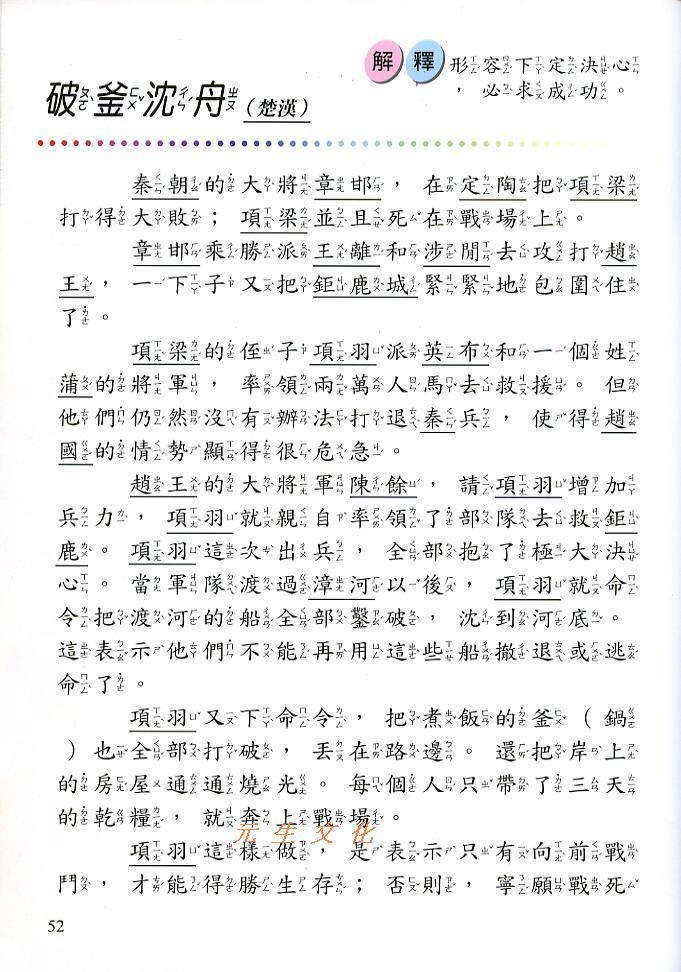 破釜沈舟（楚漢）
解釋
形容下定決心
，必求成功。
秦朝的大將章邯，在定陶把項梁
打得大敗；項梁並且死在戰場上。
章邯乘勝派王離和涉閒去攻打趙
王，一下子又把鉅鹿城緊緊地包圍住
了。
項梁的侄子項羽派英布和一個姓
蒲的將軍，率領兩萬人馬去救援。但
他們仍然沒有辦法打退秦兵，使得趙
國的情勢顯得很危急。
趙王的大將軍陳餘，請項羽增加
兵力，項羽就親自率領了部隊去救鉅
鹿。項羽這次出兵，全部抱了極大決
心。當軍隊渡過漳河以後，項羽就命
令把渡河的船全部鑿破，沈到河底。
這表示他們不能再用這些船撤退或逃
命了。
項羽又下命令，把煮飯的釜（鍋
）也全部打破，丟在路邊。還把岸上
的房屋通通燒光。每個人只帶了三天
的乾糧，就奔上戰場。
元生文化
項羽這樣做，是表示只有向前戰
鬥，才能得勝生存；否則，寧願戰死
52